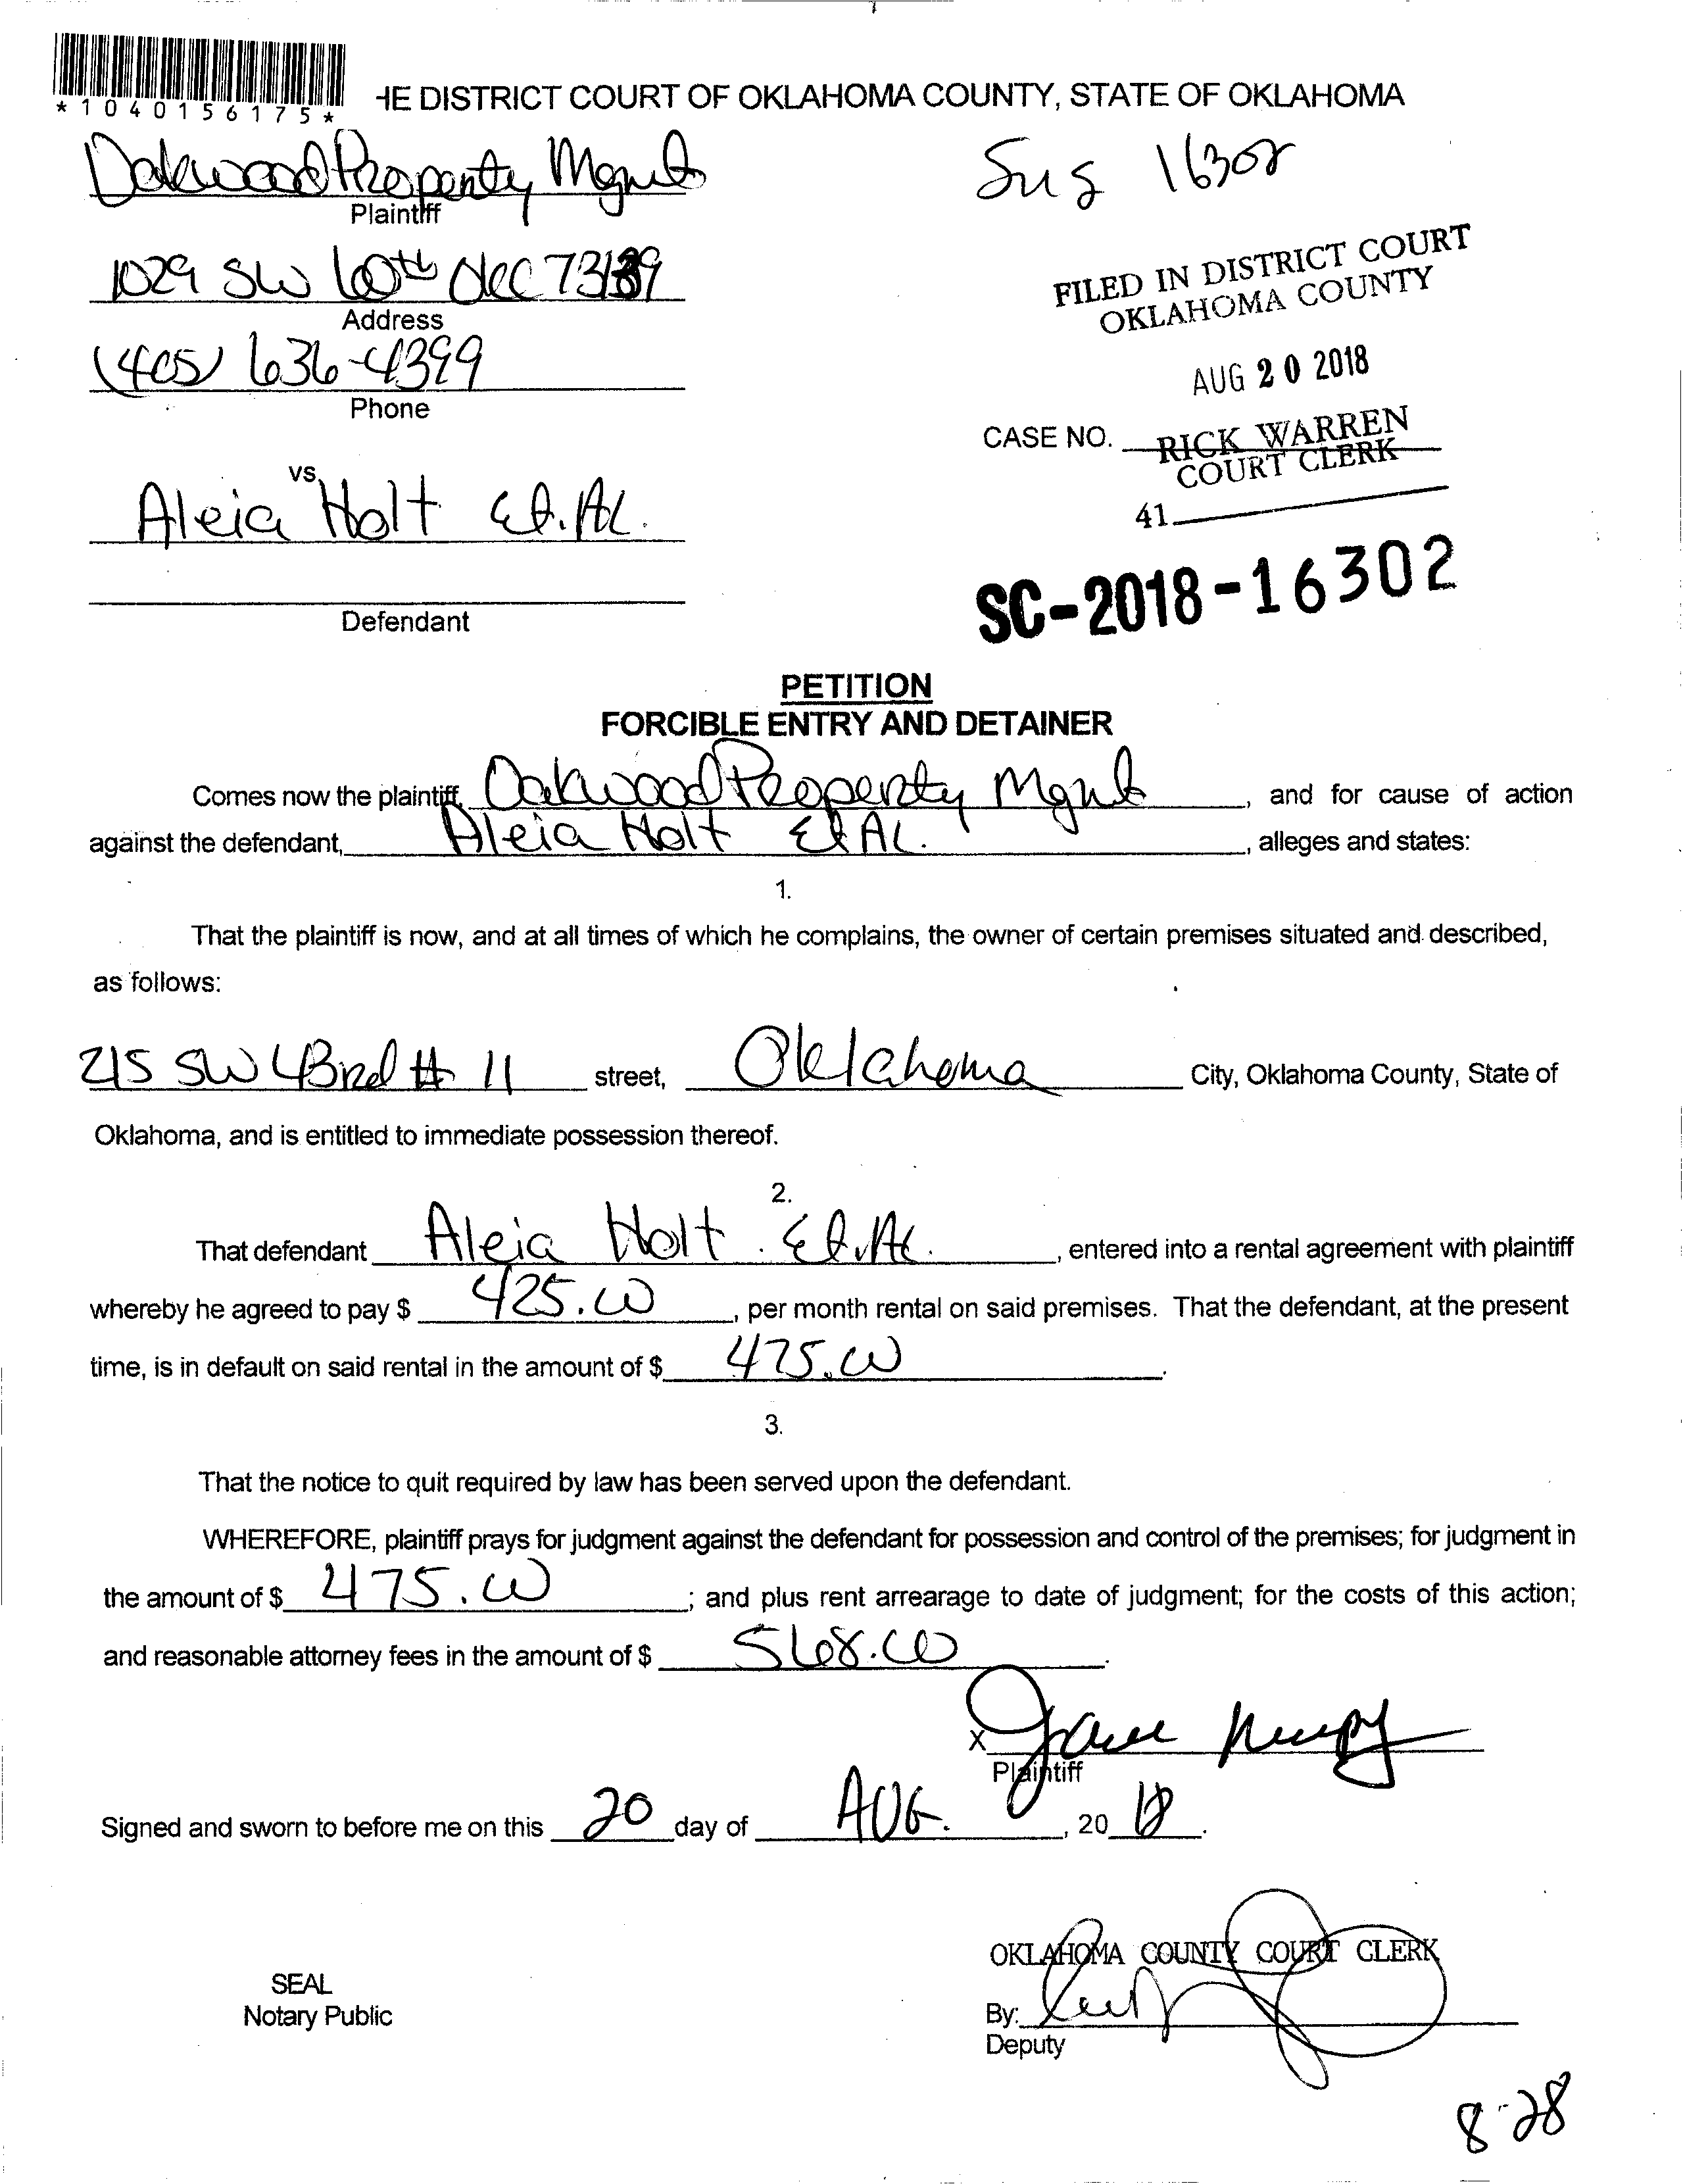 *1040156175*
HE DISTRICT COURT OF OKLAHOMA COUNTY, STATE OF OKLAHOMA
Oakwood Property Mgmt
Sug 16302
Plaintiff
1029 SW 60th OKC 73139
Address
(405) 636-4399
Phone
FILED IN DISTRICT COURT
OKLAHOMA COUNTY
AUG 20 2018
CASE NO. RICK WARREN
COURT CLERK
41
vs.
Aleia Holt Et. AL.
SC-2018-16302
Defendant
PETITION
FORCIBLE ENTRY AND DETAINER
Comes now the plaintiff, Oakwood Property Mgmt, and for cause of action
against the defendant, Aleia Holt Et AL., alleges and states:
1.
That the plaintiff is now, and at all times of which he complains, the owner of certain premises situated and described,
as follows:
215 SW 43rd # 11 street, Oklahoma City, Oklahoma County, State of
Oklahoma, and is entitled to immediate possession thereof.
2.
That defendant Aleia Holt Et. AL., entered into a rental agreement with plaintiff
whereby he agreed to pay $ 425.00, per month rental on said premises. That the defendant, at the present
time, is in default on said rental in the amount of $ 475.00.
3.
That the notice to quit required by law has been served upon the defendant.
WHEREFORE, plaintiff prays for judgment against the defendant for possession and control of the premises; for judgment in
the amount of $ 475.00; and plus rent arrearage to date of judgment; for the costs of this action;
and reasonable attorney fees in the amount of $ 568.00.
X
Plaintiff
Signed and sworn to before me on this 20 day of AUG., 20 18.
OKLAHOMA COUNTY COURT CLERK
SEAL
Notary Public
By:
Deputy
8-28